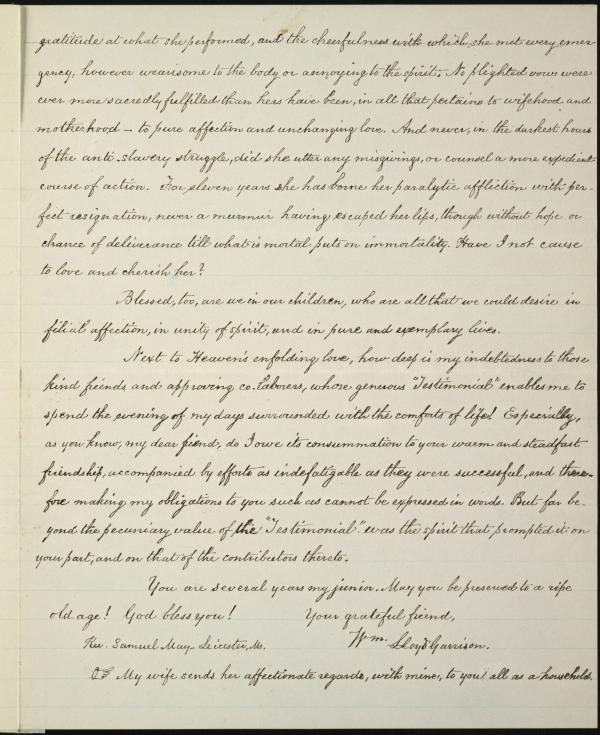 gratitude at what she performed, and the cheerfulness with which she met every emer-
gency, however wearisome to the body or annoying to the spirit. No plighted vows were
ever more sacredly fulfilled than hers have been, in all that pertains to wifehood and
motherhood – to pure affection and unchanging love. And never, in the darkest hours
of the anti-slavery struggle, did she utter any misgivings, or counsel a more expedient
course of action. For eleven years she has borne her paralytic affliction with per-
fect resignation, never a murmur having escaped her lips, though without hope or
chance of deliverance till what is mortal puts on immortality. Have I not cause
to love and cherish her?
Blessed, too, are we in our children, who are all that we could desire in
filial affection, in unity of spirit, and in pure and exemplary lives.
Next to Heaven's enfolding love, how deep is my indebtedness to those
kind friends and approving co-laborers, whose generous "Testimonial" enables me to
spend the evening of my days surrounded with the comforts of life! Especially,
as you know, my dear friend, do I owe its consummation to your warm and steadfast
friendship, accompanied by efforts as indefatigable as they were successful, and there-
fore making my obligations to you such as cannot be expressed in words. But far be-
yond the pecuniary value of the "Testimonial" was the spirit that prompted it on
your part, and on that of the contributors thereto.
You are several years my junior. May you be preserved to a ripe
old age! God bless you! Your grateful friend,
Rev. Samuel May – Leicester, Ms. Wm. Lloyd Garrison.
My wife sends her affectionate regards, with mine, to you all as a household.